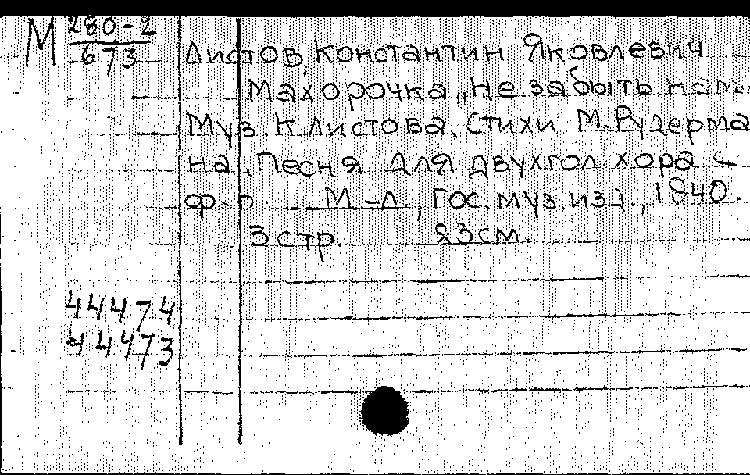 М 280-2
673
Листов, Константин Яковлевич
Махорочка „Не забыть нам
Муз. К. Листова. Стихи М. Рудерма
на. Песня для двухгол. хора с
ф.-п. М-Л, Гос. муз. изд., 1940.
3 стр. 23см.
44474
44473